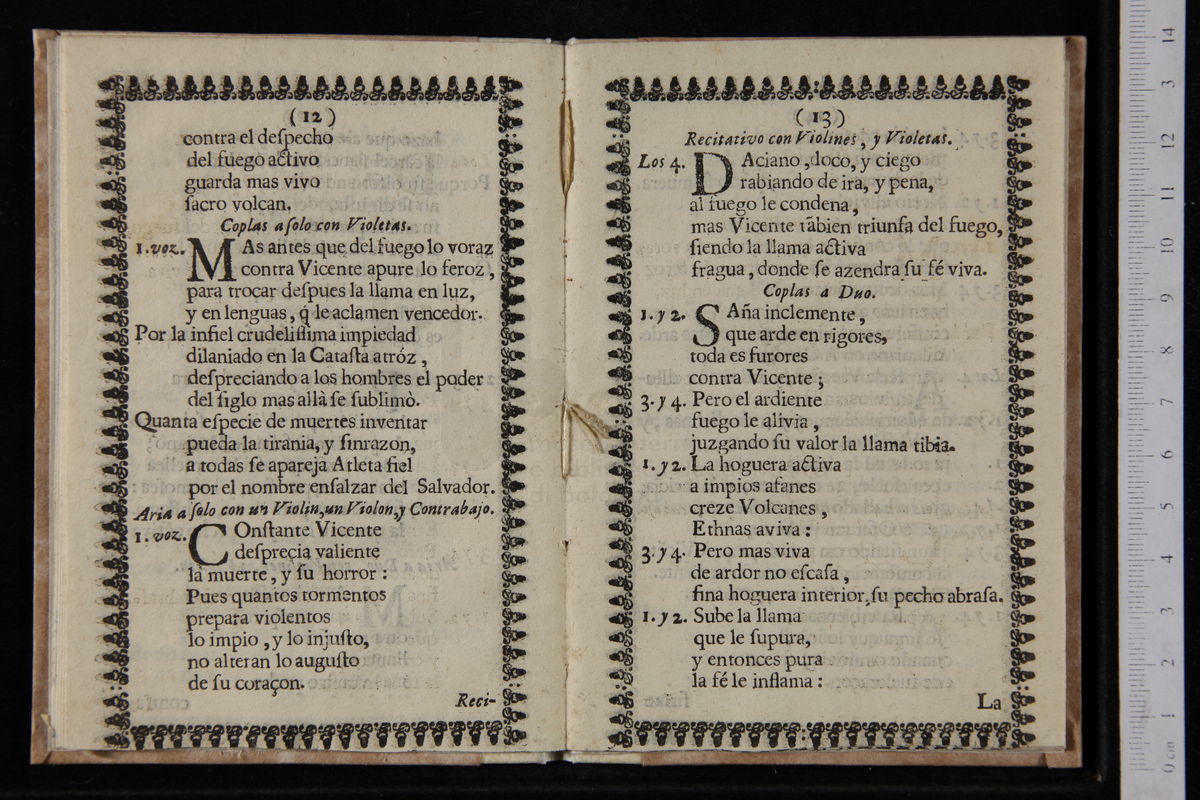 (12)
contra el deſpecho
del fuego activo
guarda mas vivo
ſacro volcan.
Coplas a ſolo con Violetas.
1. voz. MAs antes que del fuego lo voraz
contra Vicente apure lo feroz,
para trocar deſpues la llama en luz,
y en lenguas, q̃ le aclamen vencedor.
Por la infiel crudeliſſima impiedad
dilaniado en la Cataſta atróz,
deſpreciando a los hombres el poder
del ſiglo mas allà ſe ſublimò.
Quanta eſpecie de muertes inventar
pueda la tirania, y ſinrazon,
a todas ſe apareja Atleta fiel
por el nombre enſalzar del Salvador.
Aria a ſolo con un Violin, un Violon, y Contrabajo.
1. voz. COnſtante Vicente
deſprecia valiente
la muerte, y ſu horror:
Pues quantos tormentos
prepara violentos
lo impio, y lo injuſto,
no alteran lo auguſto
de ſu coraçon.
Reci-
(13)
Recitativo con Violines, y Violetas.
Los 4. DAciano, loco, y ciego
rabiando de ira, y pena,
al fuego le condena,
mas Vicente tãbien triunfa del fuego,
ſiendo la llama activa
fragua, donde ſe azendra ſu fé viva.
Coplas a Duo.
1. y 2. SAña inclemente,
que arde en rigores,
toda es furores
contra Vicente;
3. y 4. Pero el ardiente
fuego le alivia,
juzgando ſu valor la llama tibia.
1. y 2. La hoguera activa
a impios afanes
creze Volcanes,
Ethnas aviva:
3. y 4. Pero mas viva
de ardor no eſcaſa,
fina hoguera interior, ſu pecho abraſa.
1. y 2. Sube la llama
que le ſupura,
y entonces pura
la fé le inflama:
La
0 cm 1 2 3 4 5 6 7 8 9 10 11 12 3 14